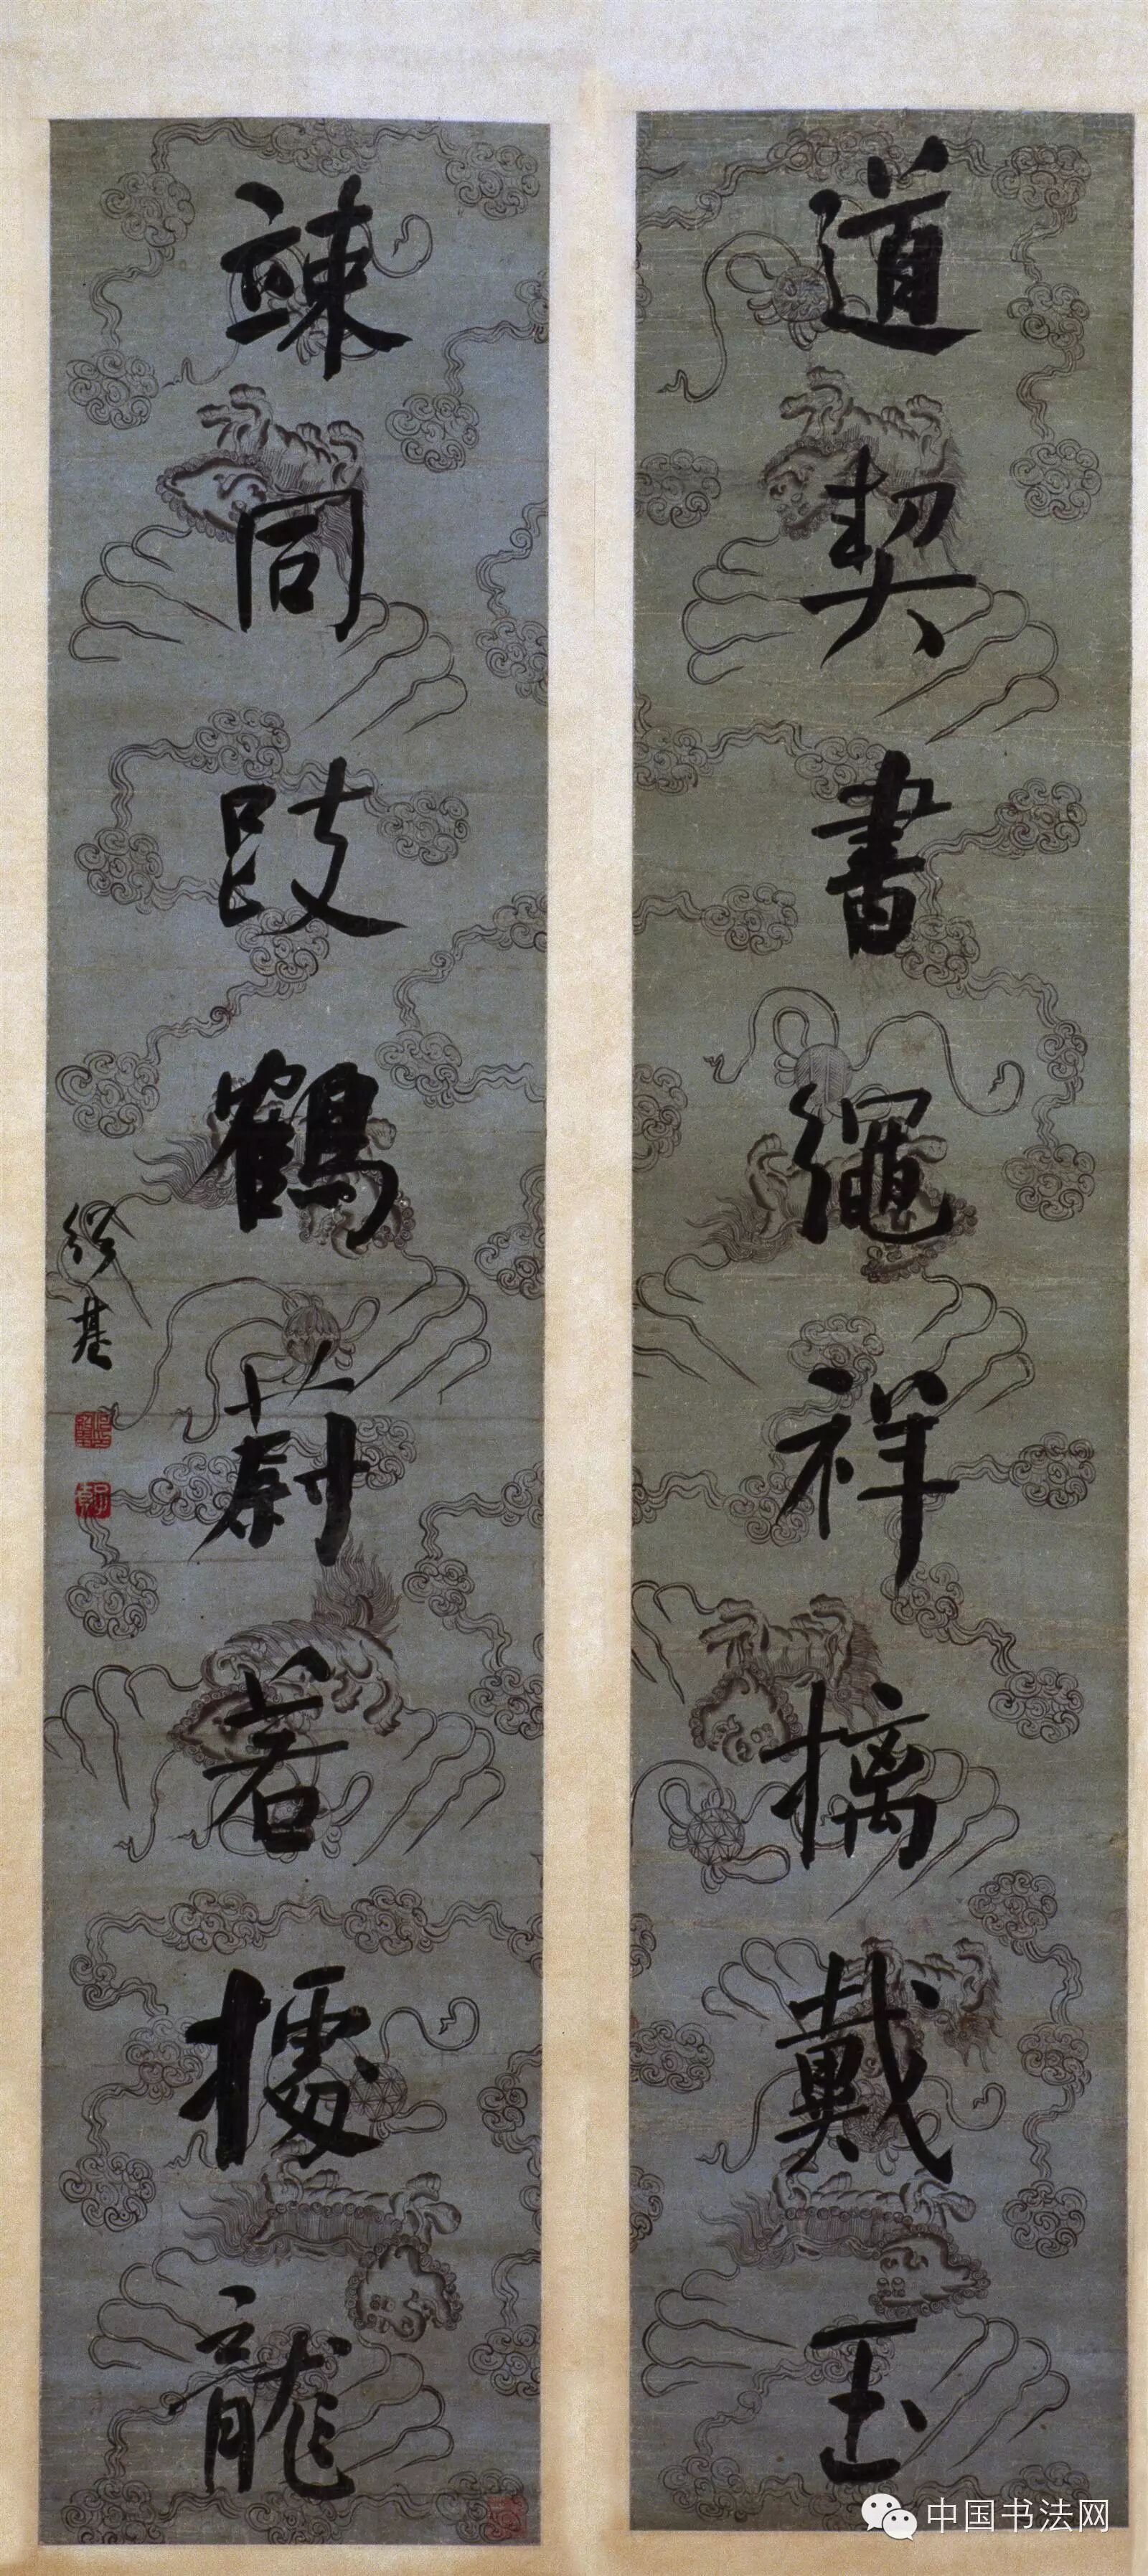 道契書繩祥摛戴玉
竦同跂鶴蔚若據龍
紹基
中国书法网